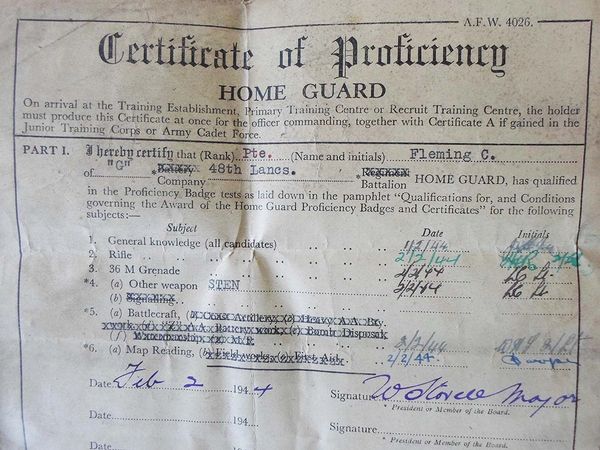 A.F.W. 4026.
Certificate of Proficiency
HOME GUARD
On arrival at the Training Establishment, Primary Training Centre or Recruit Training Centre, the holder
must produce this Certificate at once for the officer commanding, together with Certificate A if gained in the
Junior Training Corps or Army Cadet Force.
PART I. I hereby certify that (Rank) Pte. (Name and initials) Fleming C.
of "G" *Battery Company 48th Lancs. *Regiment Battalion HOME GUARD, has qualified
in the Proficiency Badge tests as laid down in the pamphlet "Qualifications for, and Conditions
governing the Award of the Home Guard Proficiency Badges and Certificates" for the following
subjects:—
Subject Date Initials
1. General knowledge (all candidates) 1/2/44
2. Rifle 2/2/44
3. 36 M Grenade 2/2/44
*4. (a) Other weapon STEN 2/2/44
(b) Signalling
*5. (a) Battlecraft, (b) Coast Artillery, (c) Heavy A.A. Bty.
Battery work, (e) Bomb Disposal
(f) 2/2/44
*6. (a) Map Reading, (b) Field works, (c) First Aid 2/2/44
Date Feb 2 194 4 Signature Major
* President or Member of the Board.
Date 194 Signature
* President or Member of the Board.
Date 194 Signature